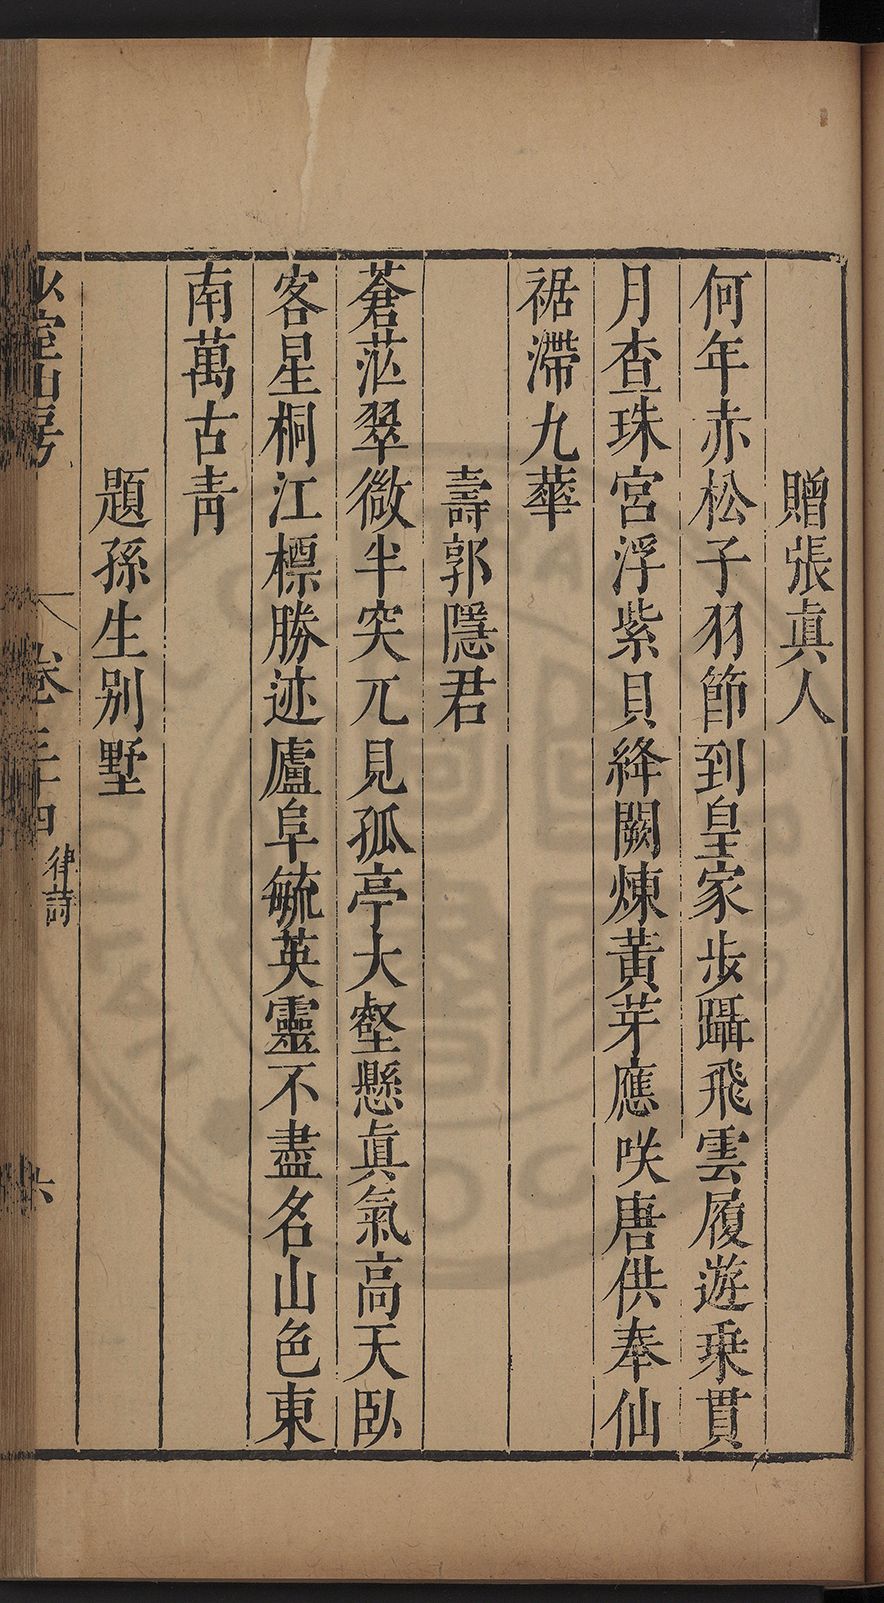 贈張眞人
何年赤松子羽節到皇家步躡飛雲履遊乘貫
月查珠宮浮紫貝絳闕煉黃芽應咲唐供奉仙
裾滯九華
壽郭隱君
蒼茫翠微半突兀見孤亭大壑懸眞氣高天臥
客星桐江標勝迹廬阜毓英靈不盡名山色東
南萬古靑
題孫生別墅
室山房
卷三十四
律詩
六